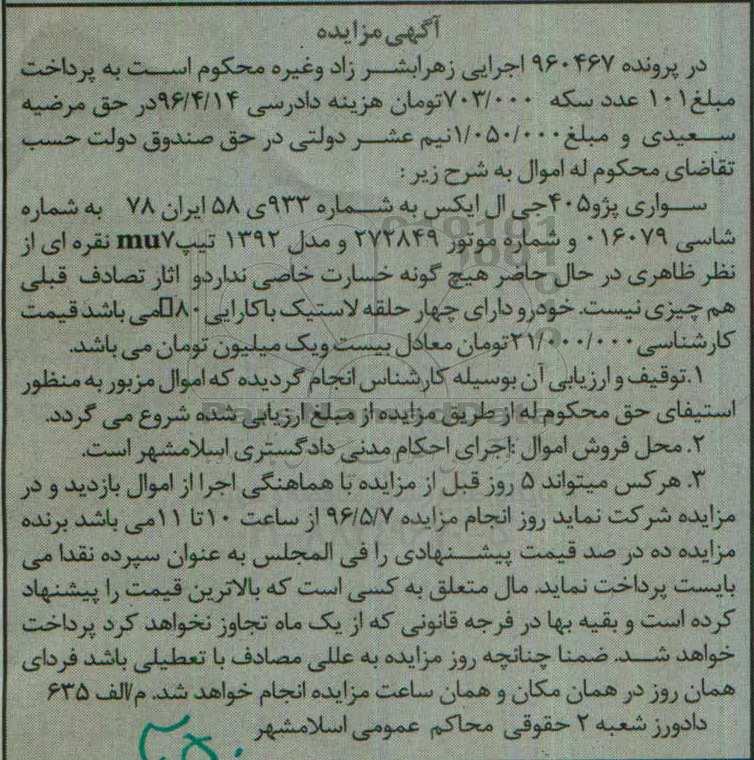 آگهی مزایده
در پرونده ۹۶۰۴۶۷ اجرایی زهرابشر زاد وغیره محکوم است به پرداخت
مبلغ۱۰۱ عدد سکه ۷۰۳/۰۰۰تومان هزینه دادرسی ۹۶/۴/۱۴در حق مرضیه
سعیدی و مبلغ۱/۰۵۰/۰۰۰نیم عشر دولتی در حق صندوق دولت حسب
تقاضای محکوم له اموال به شرح زیر :
سواری پژو۴۰۵جی ال ایکس به شماره ۹۳۳ی ۵۸ ایران ۷۸ به شماره
شاسی ۰۱۶۰۷۹ و شماره موتور ۲۷۲۸۴۹ و مدل ۱۳۹۲ تیپmu۷ نقره ای از
نظر ظاهری در حال حاضر هیچ گونه خسارت خاصی نداردو اثار تصادف قبلی
هم چیزی نیست. خودرو دارای چهار حلقه لاستیک باکارایی۸۰می باشد قیمت
کارشناسی۲۱/۰۰۰/۰۰۰تومان معادل بیست ویک میلیون تومان می باشد.
۱.توقیف و ارزیابی آن بوسیله کارشناس انجام گردیده که اموال مزبور به منظور
استیفای حق محکوم له از طریق مزایده از مبلغ ارزیابی شده شروع می گردد.
۲. محل فروش اموال :اجرای احکام مدنی دادگستری اسلامشهر است.
۳. هرکس میتواند ۵ روز قبل از مزایده با هماهنگی اجرا از اموال بازدید و در
مزایده شرکت نماید روز انجام مزایده ۹۶/۵/۷ از ساعت ۱۰تا ۱۱می باشد برنده
مزایده ده در صد قیمت پیشنهادی را فی المجلس به عنوان سپرده نقدا می
بایست پرداخت نماید. مال متعلق به کسی است که بالاترین قیمت را پیشنهاد
کرده است و بقیه بها در فرجه قانونی که از یک ماه تجاوز نخواهد کرد پرداخت
خواهد شد. ضمنا چنانچه روز مزایده به عللی مصادف با تعطیلی باشد فردای
همان روز در همان مکان و همان ساعت مزایده انجام خواهد شد. م/الف ۶۳۵
دادورز شعبه ۲ حقوقی محاکم عمومی اسلامشهر